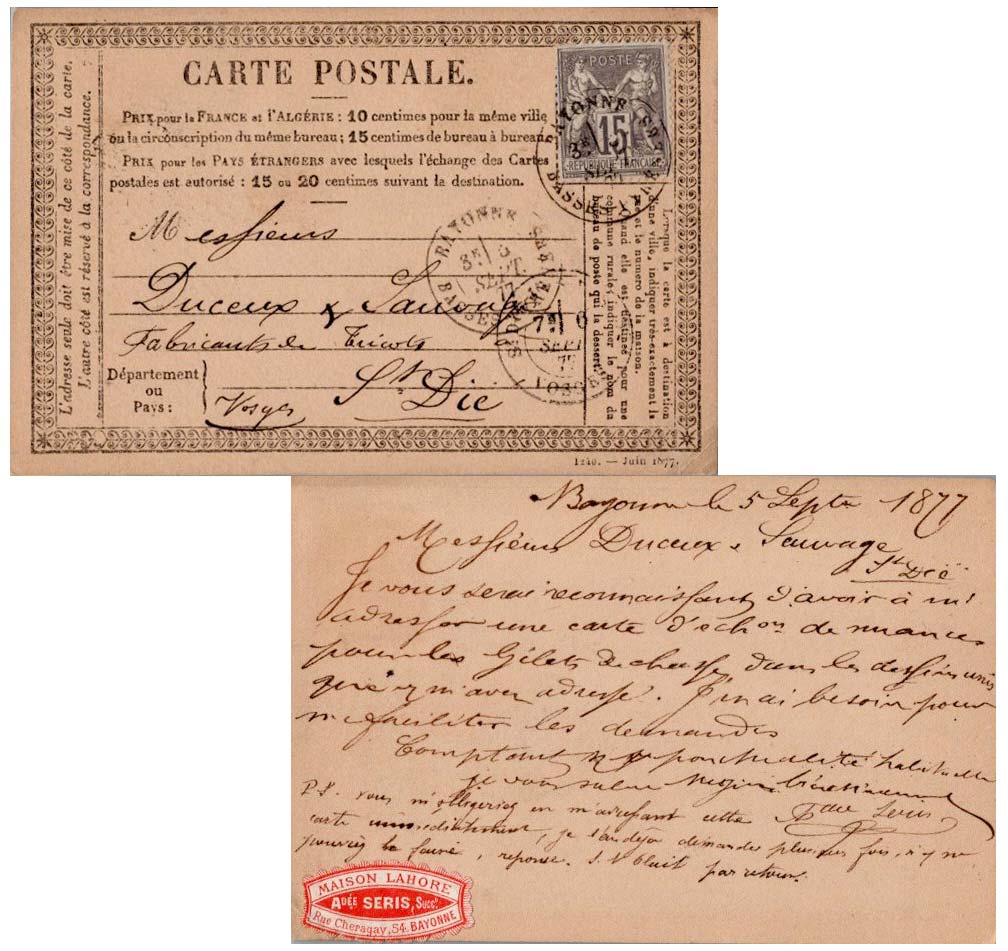 CARTE POSTALE.
PRIX pour la FRANCE et l'ALGÉRIE : 10 centimes pour la même ville
ou la circonscription du même bureau ; 15 centimes de bureau à bureau.
PRIX pour les PAYS ÉTRANGERS avec lesquels l'échange des Cartes
postales est autorisé : 15 ou 20 centimes suivant la destination.
L'adresse seule doit être mise de ce côté de la carte.
L'autre côté est réservé à la correspondance.
POSTE
15
REPUBLIQUE FRANÇAISE
BAYONNE
BASSES
Messieurs
Duceux & Sauvage
Fabricants de Tricots
St Dié
Département
ou
Pays :
Vosges
BAYONNE
3E 5
SEPT.
77
7E 6
SEPT
77
VOSGES
Lorsque la carte est à destination
d'une ville, indiquer très-exactement la
rue et le numéro de la maison.
Quand elle est destinée pour une
commune rurale, indiquer le nom du
bureau de poste qui la dessert.
1240. — Juin 1877.
Bayonne le 5 Septe 1877
Messieurs Duceux & Sauvage
St Dié
Je vous serai reconnaissant d'avoir à m'
adresser une carte d'échon de nuances
pour les Gilets de chasse dans les dessins unis
que m'avez adressé. J'en ai besoin pour
me faciliter les demandes
Comptant ponctualité habituelle
je vous salue
Adée Seris
P.S. vous m'obligeriez en m'adressant cette
carte immédiatement, je l'ai déjà demandée plusieurs fois, si
pouviez le faire, réponse S.V. Plait par retour.
MAISON LAHORE
ADÉE SERIS, Succr.
Rue Cheragay, 54. BAYONNE